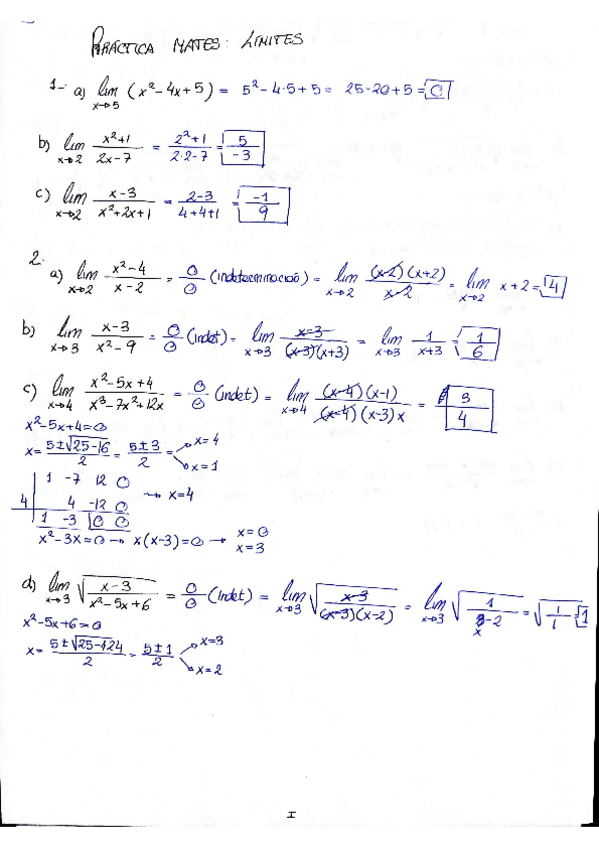 PRÁCTICA MATES: LÍMITES
1- a) lim x→5 (x²-4x+5) = 5²-4·5+5 = 25-20+5 = 0
b) lim x→2 x²+1/2x-7 = 2²+1/2·2-7 = 5/-3
c) lim x→2 x-3/x²+2x+1 = 2-3/4+4+1 = -1/9
2.
a) lim x→2 x²-4/x-2 = 0/0 (indeterminació) = lim x→2 (x-2)(x+2)/x-2 = lim x→2 x+2 = 4
b) lim x→3 x-3/x²-9 = 0/0 (indet) = lim x→3 x-3/(x-3)(x+3) = lim x→3 1/x+3 = 1/6
c) lim x→4 x²-5x+4/x³-7x²+12x = 0/0 (indet) = lim x→4 (x-4)(x-1)/(x-4)(x-3)x = 3/4
x²-5x+4=0
x= 5±√25-16/2 = 5±3/2 = x=4 x=1
1 -7 12 0
4 4 -12 0 → x=4
1 -3 0 0
x²-3x=0 → x(x-3)=0 → x=0 x=3
d) lim x→3 √x-3/x²-5x+6 = 0/0 (indet) = lim x→3 √x-3/(x-3)(x-2) = lim x→3 √1/x-2 = √1/1 = 1
x²-5x+6=0
x= 5±√25-24/2 = 5±1/2 x=3 x=2
I